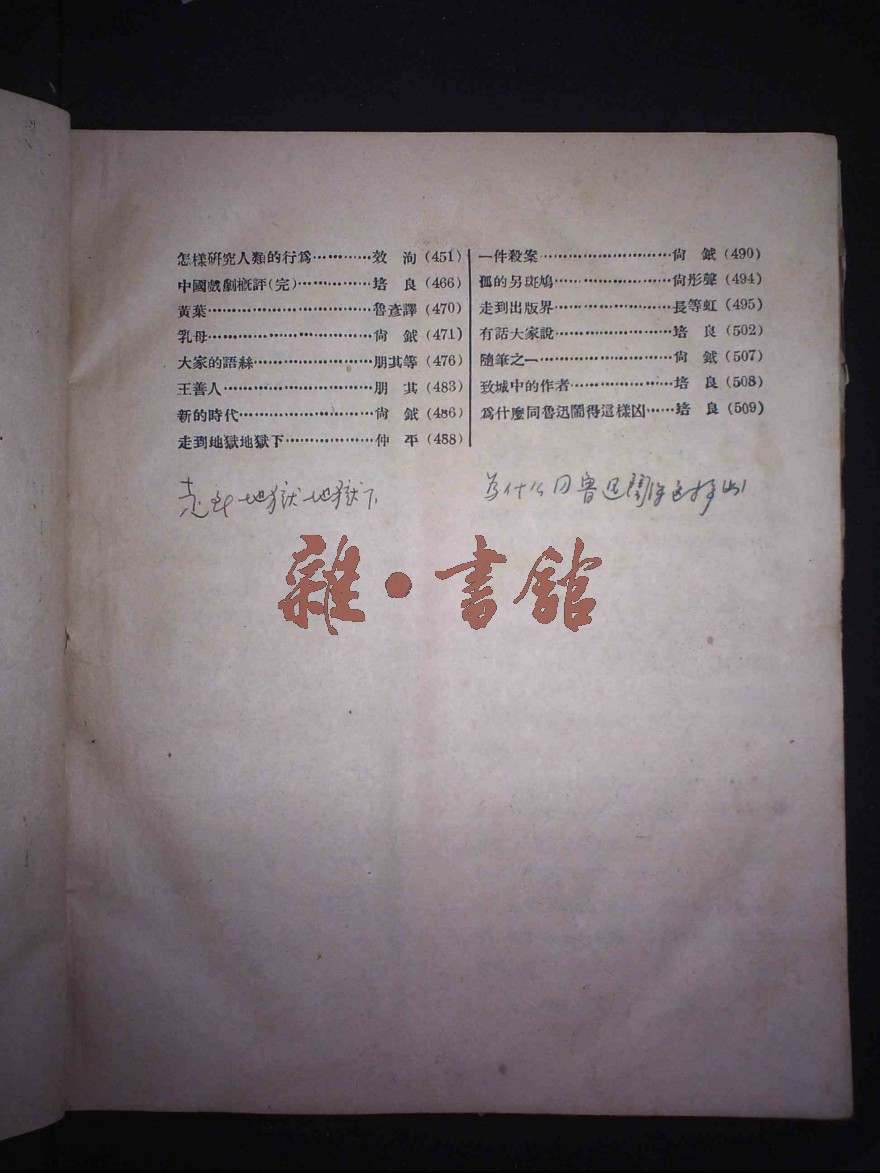 怎樣硏究人類的行爲············效 洵 (451)
中國戲劇槪評(完)···············培 良 (466)
黃葉·································魯彥譯 (470)
乳母·································尙 鉞 (471)
大家的語絲························朋其等 (476)
王善人······························朋 其 (483)
新的時代···························尙 鉞 (486)
走到地獄地獄下··················仲 平 (488)
一件殺案···························尙 鉞 (490)
孤的另斑鳩························尙彤聲 (494)
走到出版界························長等虹 (495)
有話大家說························培 良 (502)
隨筆之一···························尙 鉞 (507)
致城中的作者·····················培 良 (508)
爲什麼同魯迅鬧得這樣凶······培 良 (509)
走到地獄地獄下
为什么同魯迅鬧得这样凶
雜·書館